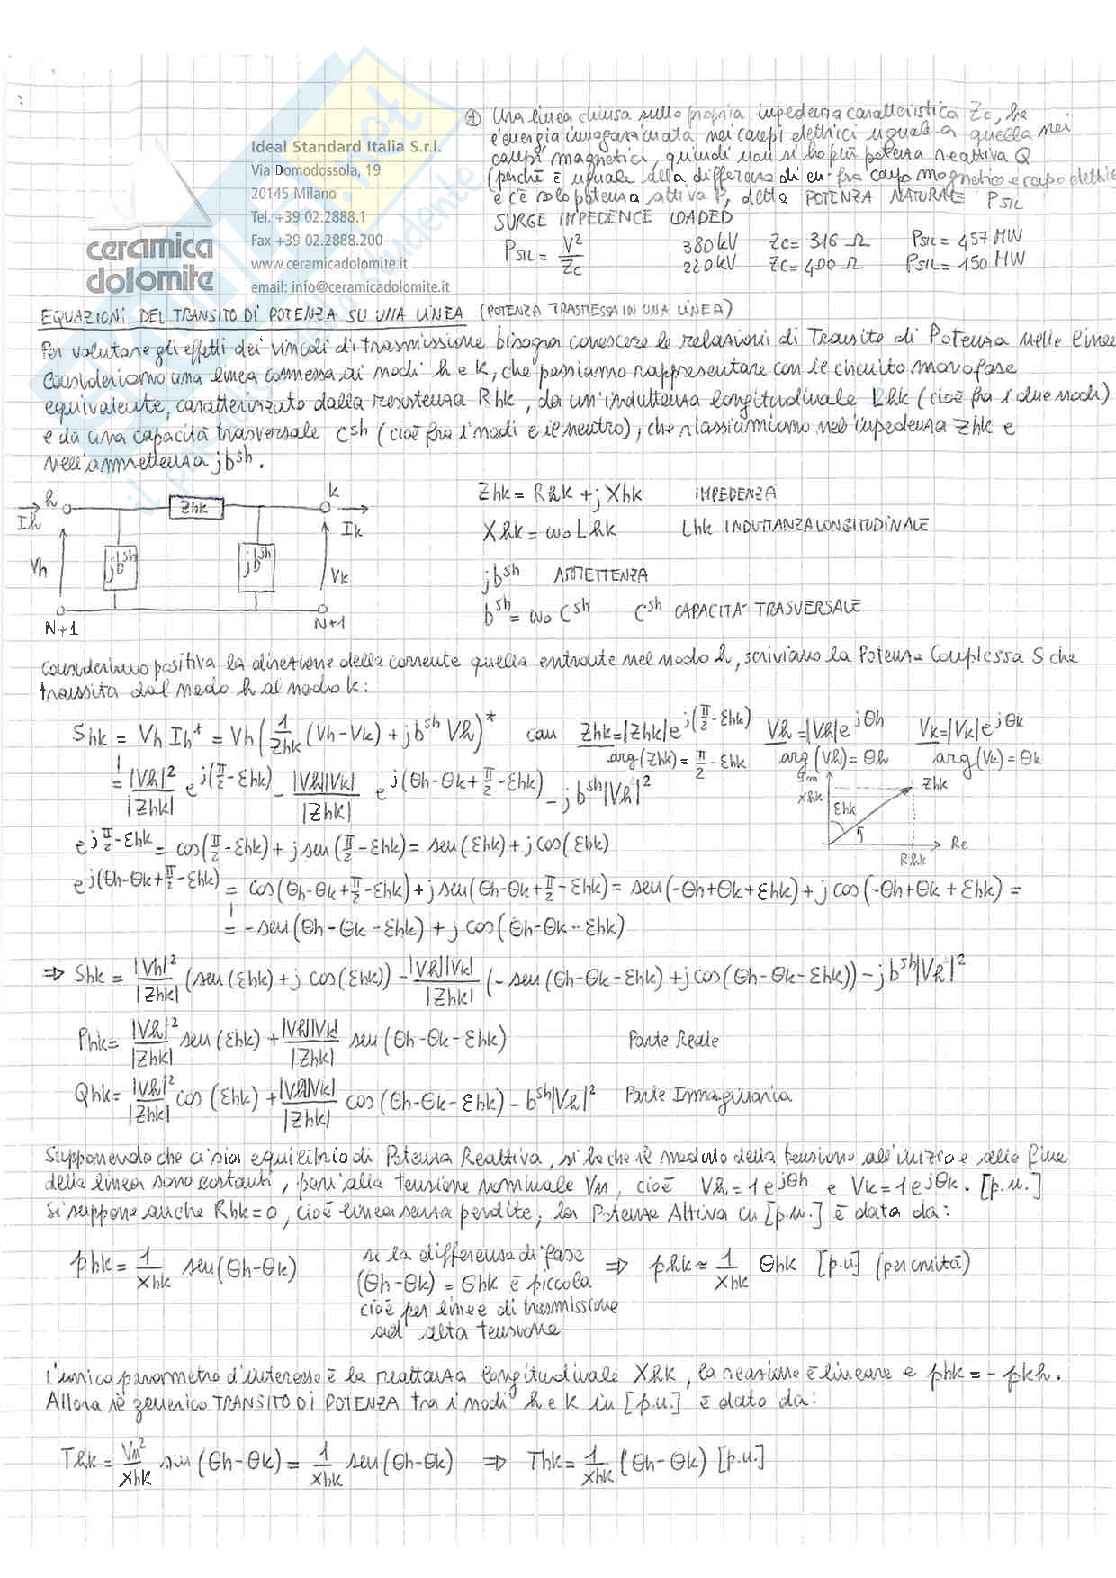 Ideal Standard Italia S.r.l.
Via Domodossola, 19
20145 Milano
Tel. +39 02.2888.1
Fax +39 02.2888.200
www.ceramicadolomite.it
email: info@ceramicadolomite.it
ceramica
dolomite
① Una linea chiusa sulla propria impedenza caratteristica Zc, ha
l'energia immagazzinata nei campi elettrici uguale a quella nei
campi magnetici, quindi non si ha più potenza reattiva Q
(perché è uguale alla differenza di en. fra campo magnetico e campo elettrico
e c'è solo potenza attiva P, detta POTENZA NATURALE PSIL
SURGE IMPEDENCE LOADED
PSIL = V²/Zc 380 kV Zc= 316 Ω PSIL= 457 MW
220kV Zc= 400 Ω PSIL= 150 MW
EQUAZIONI DEL TRANSITO DI POTENZA SU UNA LINEA (POTENZA TRASMESSA IN UNA LINEA)
Per valutare gli effetti dei vincoli di trasmissione bisogna conoscere le relazioni di Transito di Potenza nelle linee
Consideriamo una linea connessa ai nodi h e k, che possiamo rappresentare con il circuito monofase
equivalente, caratterizzato dalla resistenza Rhk, da un'induttanza longitudinale Lhk (cioè fra i due nodi)
e da una capacità trasversale Csh (cioè fra i nodi e il neutro), che riassumiamo nell'impedenza Zhk e
nell'ammettenza jbsh.
h Zhk k
Ih Ik
Vh jbsh jbsh Vk
N+1 N+1
Zhk = Rhk + j Xhk IMPEDENZA
Xhk = ω0 Lhk Lhk INDUTTANZA LONGITUDINALE
jbsh AMMETTENZA
bsh = ω0 Csh Csh CAPACITÀ TRASVERSALE
Consideriamo positiva la direzione della corrente quella entrante nel nodo h, scriviamo la Potenza Complessa S che
transita dal nodo h al nodo k:
Shk = Vh Ih* = Vh(1/Zhk (Vh-Vk) + jbsh Vh)* con Zhk=|Zhk|e^j(π/2-εhk) Vh=|Vh|e^jθh Vk=|Vk|e^jθk
arg(Zhk)= π/2-εhk arg(Vh)=θh arg(Vk)=θk
= |Vh|²/|Zhk| e^j(π/2-εhk) - |Vh||Vk|/|Zhk| e^j(θh-θk+π/2-εhk) - jbsh|Vh|²
Xhk εhk Zhk Re Rhk
e^jπ/2-εhk = cos(π/2-εhk) + j sen(π/2-εhk) = sen(εhk) + j cos(εhk)
e^j(θh-θk+π/2-εhk) = cos(θh-θk+π/2-εhk) + j sen(θh-θk+π/2-εhk) = sen(-θh+θk+εhk) + j cos(-θh+θk+εhk) =
= -sen(θh-θk-εhk) + j cos(θh-θk-εhk)
⇒ Shk = |Vh|²/|Zhk| (sen(εhk) + j cos(εhk)) - |Vh||Vk|/|Zhk| (-sen(θh-θk-εhk) + j cos(θh-θk-εhk)) - jbsh|Vh|²
Phk= |Vh|²/|Zhk| sen(εhk) + |Vh||Vk|/|Zhk| sen(θh-θk-εhk) Parte Reale
Qhk= |Vh|²/|Zhk| cos(εhk) + |Vh||Vk|/|Zhk| cos(θh-θk-εhk) - bsh|Vh|² Parte Immaginaria
Supponendo che ci sia equilibrio di Potenza Reattiva, si ha che il modulo della tensione all'inizio e alla fine
della linea sono costanti, pari alla tensione nominale Vn, cioè Vh=1e^jθh e Vk=1e^jθk. [p.u.]
Si suppone anche Rhk=0, cioè linea senza perdite; la Potenza Attiva in [p.u.] è data da:
phk= 1/xhk sen(θh-θk) se la differenza di fase ⇒ phk≈ 1/xhk θhk [p.u] (per unità)
(θh-θk) = θhk è piccola
cioè per linee di trasmissione
ad alta tensione
l'unico parametro d'interesse è la reattanza longitudinale Xhk, la relazione è lineare e phk=-pkh.
Allora il generico TRANSITO DI POTENZA tra i nodi h e k in [p.u.] è dato da:
Thk= Vn²/xhk sen(θh-θk) = 1/xhk sen(θh-θk) ⇒ Thk= 1/xhk (θh-θk) [p.u.]